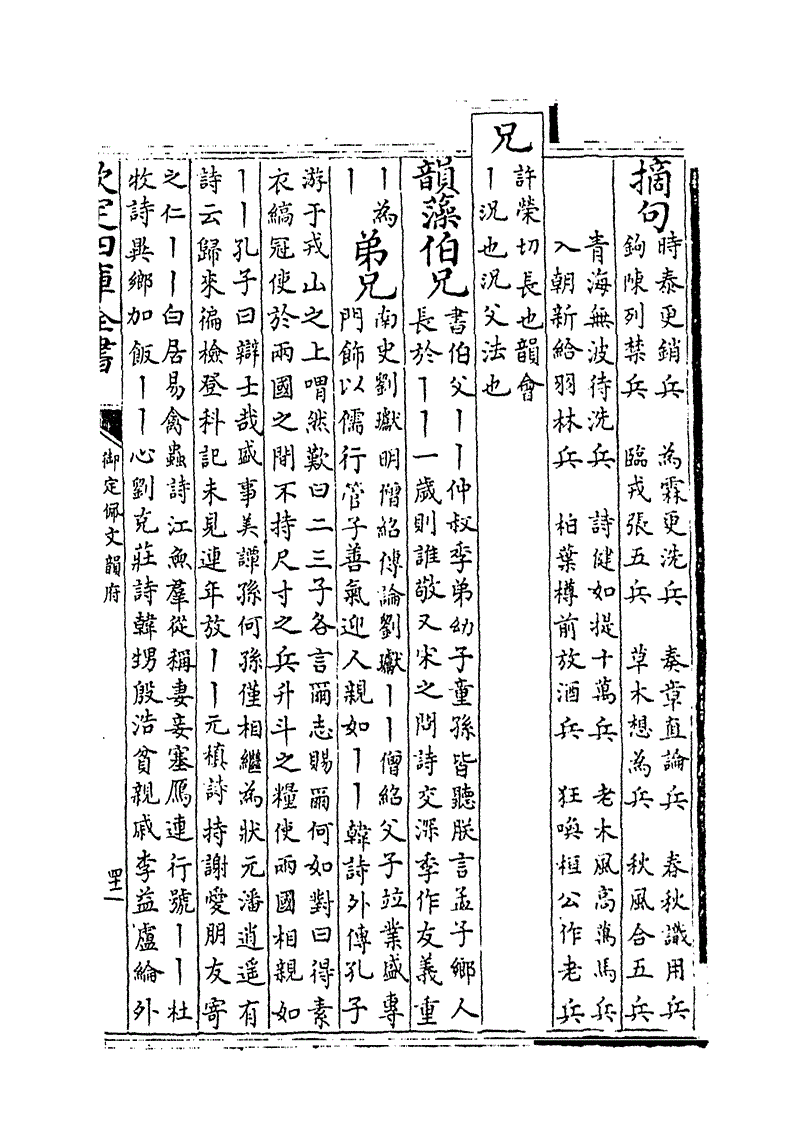 摘句
時泰更銷兵　為霖更洗兵　奏章直論兵　春秋識用兵
鉤陳列禁兵　臨戎張五兵　草木想為兵　秋風合五兵
青海無波待洗兵　詩健如提十萬兵　老木風高萬馬兵
入朝新給羽林兵　柏葉樽前放酒兵　狂喚桓公作老兵
兄
許榮切長也韻會
丨況也況父法也
韻藻伯兄
書伯父丨丨仲叔季弟幼子童孫皆聽朕言孟子鄉人
長於丨丨一歲則誰敬又宋之問詩交深季作友義重
丨為
丨
弟兄
南史劉瓛明僧紹傳論劉瓛丨丨僧紹父子竝業盛專
門飾以儒行管子善氣迎人親如丨丨韓詩外傳孔子
游于戎山之上喟然歎曰二三子各言爾志賜爾何如對曰得素
衣縞冠使於兩國之間不持尺寸之兵升斗之糧使兩國相親如
丨丨孔子曰辯士哉盛事美譚孫何孫僅相繼為狀元潘逍遥有
詩云歸來徧檢登科記未見連年放丨丨元稹詩持謝愛朋友寄
之仁丨丨白居易禽蟲詩江魚羣從稱妻妾塞鴈連行號丨丨杜
牧詩異鄉加飯丨丨心劉克莊詩韓甥殷浩貧親戚李益盧綸外
欽定四庫全書
御定佩文韻府
四十一